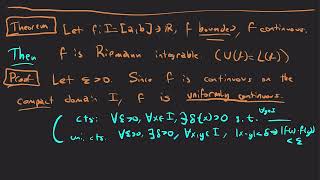 Theorem Let f: I=[a,b]→ℝ, f bounded, f continuous.
Then f is Riemann integrable (U(f)=L(f))
Proof Let ε>0. Since f is continuous on the
compact domain I, f is uniformly continuous.
( cts: ∀ε>0, ∀x∈I, ∃δ(x)>0 s.t. ∀y∈I
uni. cts: ∀ε>0, ∃δ>0, ∀x,y∈I, |x-y|<δ→|f(x)-f(y)|
<ε